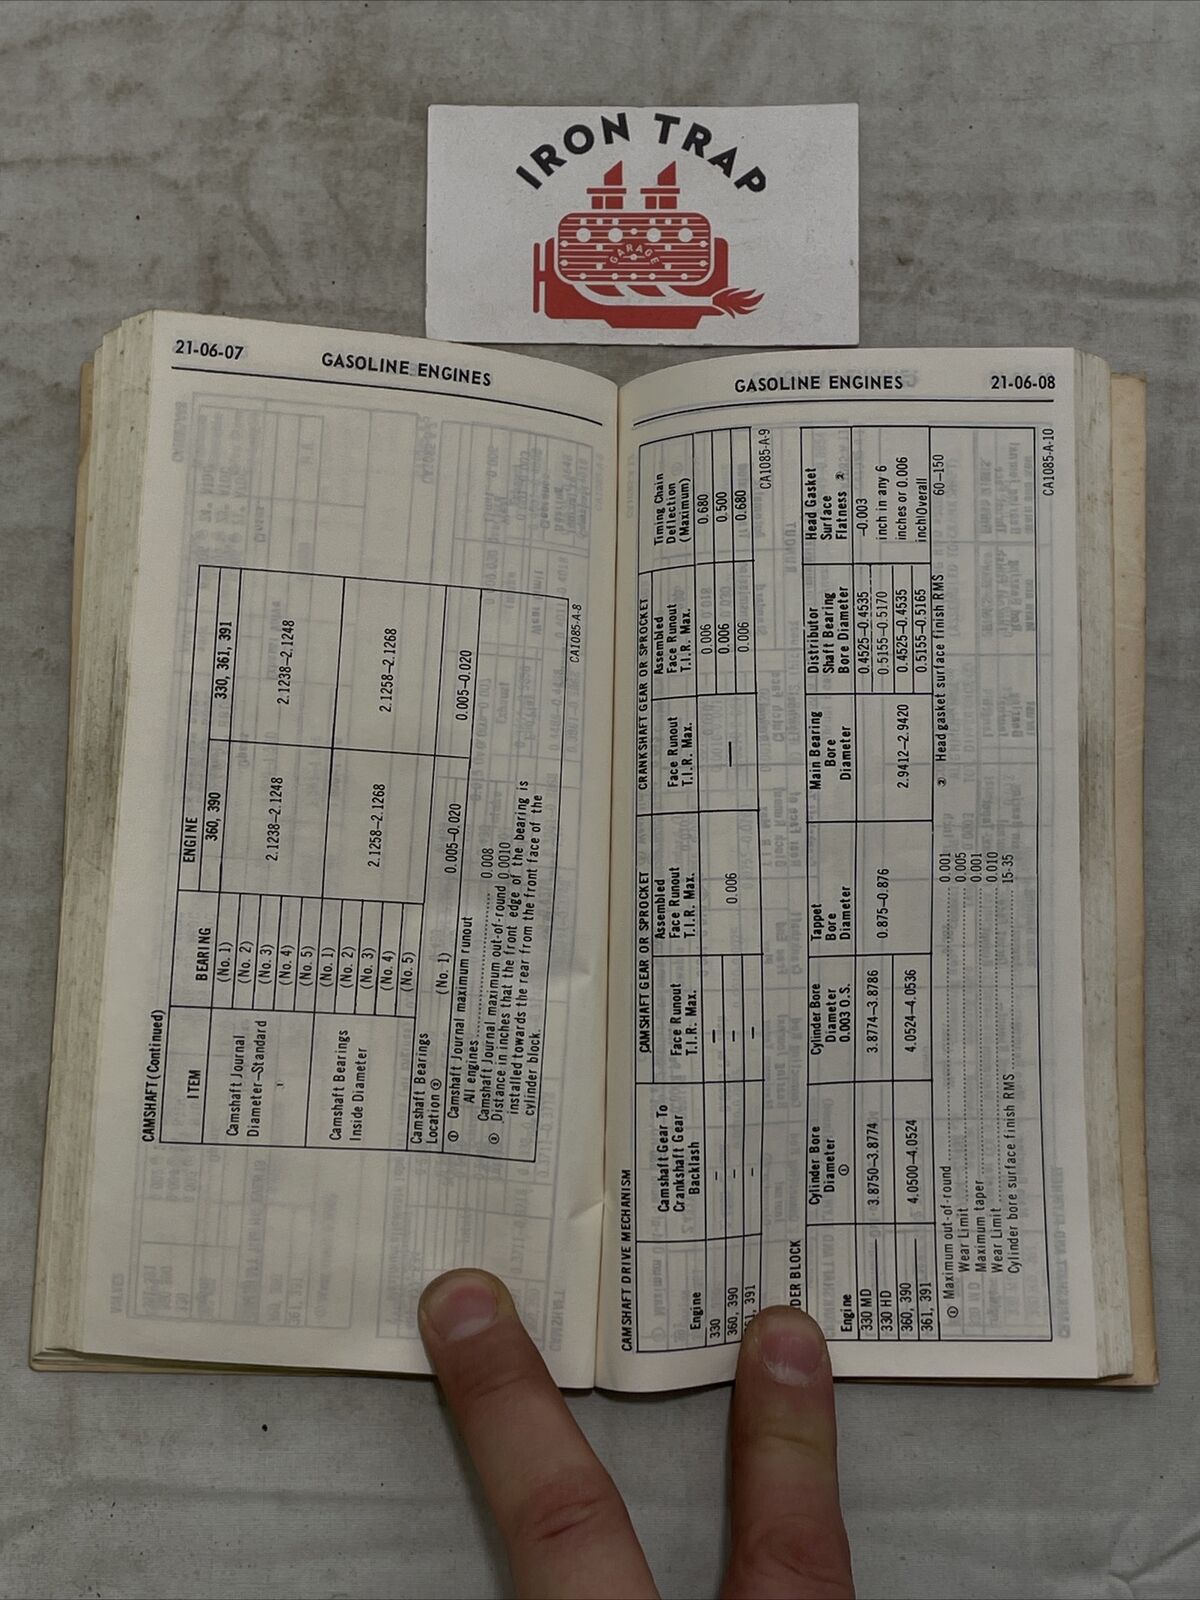 IRON TRAP
GARAGE
21-06-07 GASOLINE ENGINES
CAMSHAFT (Continued)
ITEM BEARING ENGINE
360, 390 330, 361, 391
Camshaft Journal
Diameter—Standard
(No. 1)
(No. 2)
(No. 3)
(No. 4)
(No. 5)
2.1238—2.1248 2.1238—2.1248
Camshaft Bearings
Inside Diameter
(No. 1)
(No. 2)
(No. 3)
(No. 4)
(No. 5)
2.1258—2.1268 2.1258—2.1268
Camshaft Bearings
Location ② (No. 1) 0.005—0.020 0.005—0.020
① Camshaft Journal maximum runout
All engines 0.008
Camshaft Journal maximum out-of-round 0.0010
② Distance in inches that the front edge of the bearing is
installed towards the rear from the front face of the
cylinder block.
CA1085-A-8
GASOLINE ENGINES 21-06-08
CAMSHAFT DRIVE MECHANISM
CAMSHAFT GEAR OR SPROCKET CRANKSHAFT GEAR OR SPROCKET
Engine
Camshaft Gear To
Crankshaft Gear
Backlash
Face Runout
T.I.R. Max.
Assembled
Face Runout
T.I.R. Max.
Face Runout
T.I.R. Max.
Assembled
Face Runout
T.I.R. Max.
Timing Chain
Deflection
(Maximum)
330 — — 0.006 0.680
360, 390 — — 0.006 — 0.006 0.500
61, 391 — — 0.006 0.680
CA1085-A-9
DER BLOCK
Engine
Cylinder Bore
Diameter
①
Cylinder Bore
Diameter
0.003 O.S.
Tappet
Bore
Diameter
Main Bearing
Bore
Diameter
Distributor
Shaft Bearing
Bore Diameter
Head Gasket
Surface
Flatness ②
330 MD 0.4525—0.4535 —0.003
3.8750—3.8774 3.8774—3.8786 0.875—0.876
330 HD 0.5155—0.5170 inch in any 6
360, 390 0.4525—0.4535 inches or 0.006
4.0500—4.0524 4.0524—4.0536 2.9412—2.9420
361, 391 0.5155—0.5165 inch|Overall
① Maximum out-of-round 0.001
Wear Limit 0.005
Maximum taper 0.001
Wear Limit 0.010
Cylinder bore surface finish RMS 15-35
② Head gasket surface finish RMS 60—150
CA1085-A-10